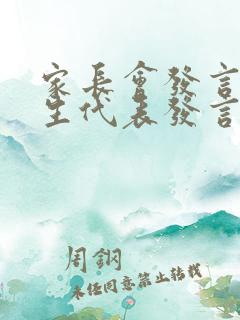 家長會發言
生代表發言
周鋼
未經同意禁止轉載